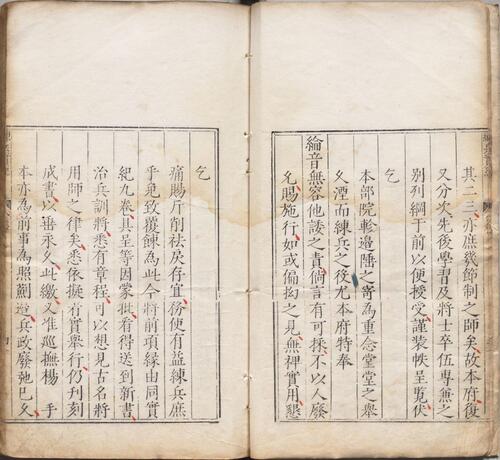 其二三亦庶幾節制之師矣故本府復
又分次先後學習及將士卒伍專兼之
別列綱于前以便授受謹裝帙呈覽伏
乞
本部院軫邊陲之寄為重念堂堂之舉
久湮而練兵之役尤本府特奉
綸音無容他諉之責倘言有可採不以人廢
允賜施行如或偏拘之見無裨實用懇
乞
痛賜斥削袪戾存宜務使有益練兵庶
乎免致覆餗為此今將前項緣由同實
紀九卷具呈等因蒙批看得送到新書
治兵訓將悉有章程可以想見古名將
用師之律矣悉依擬着實舉行仍刋刻
成書以垂永久此繳又准巡撫楊 手
本亦為前事為照薊遼兵政廢弛已久